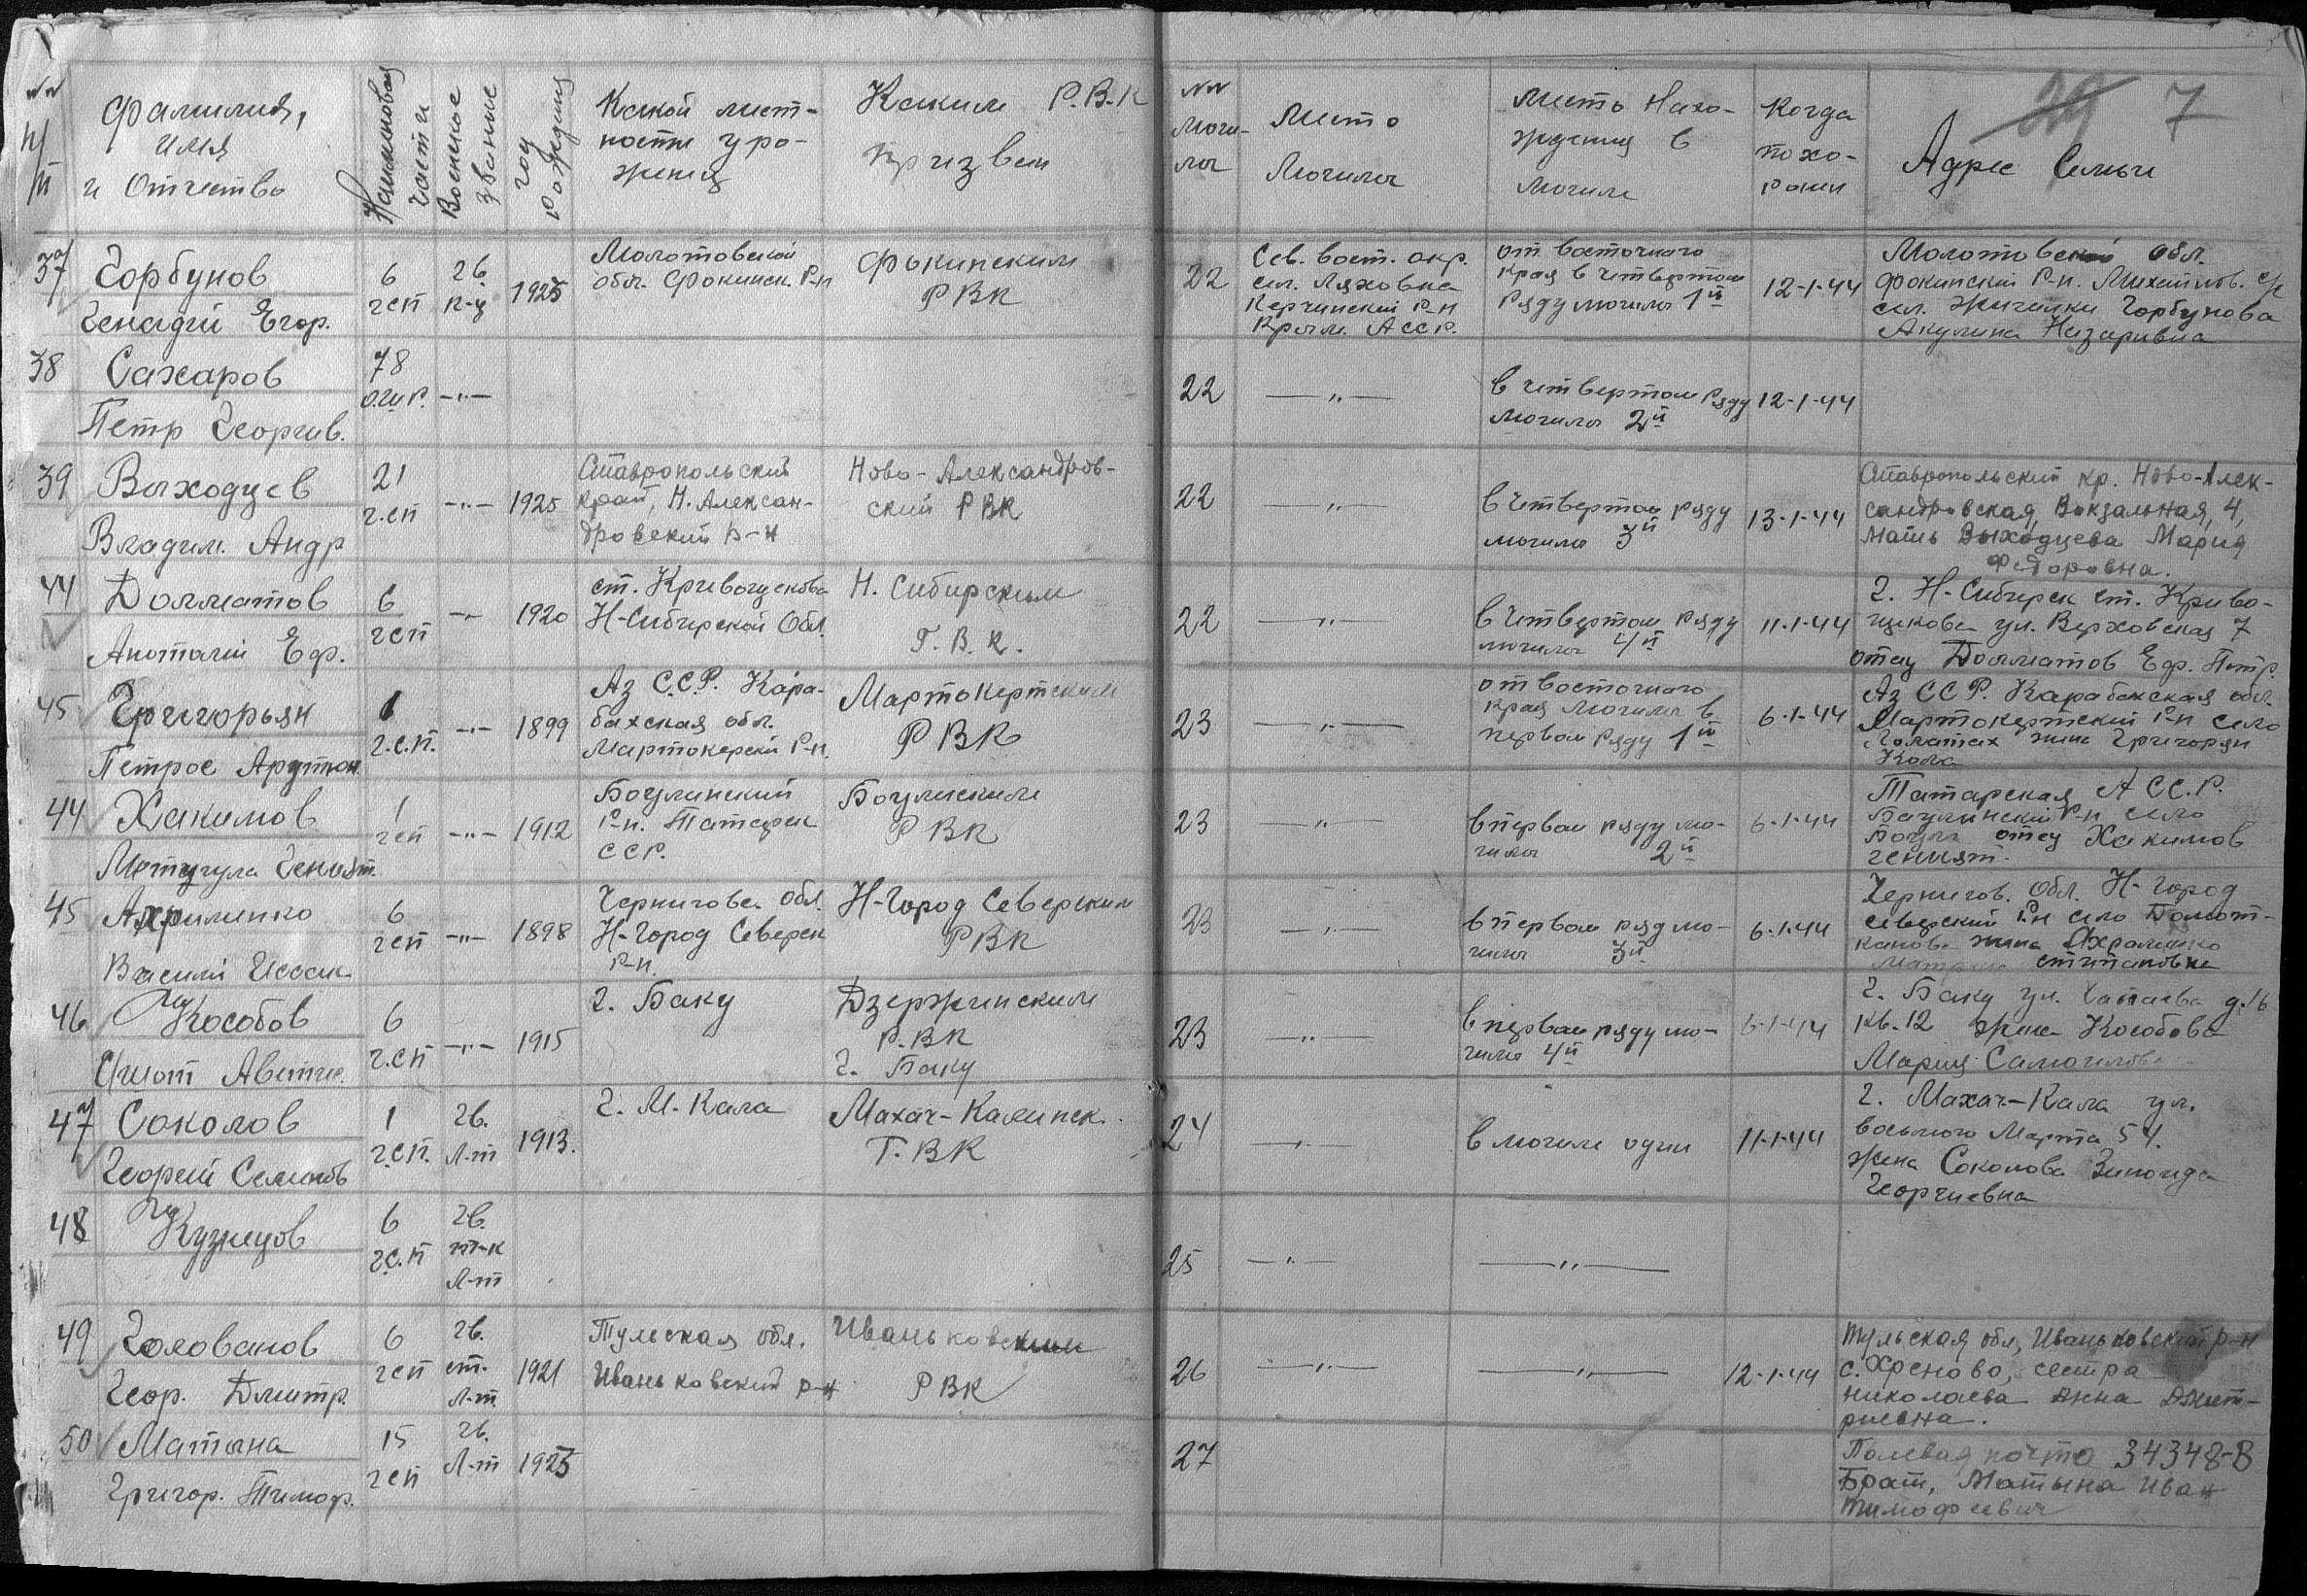 29 7
№№ п/п
Фамилия, имя и Отчество
Наименован части
Военское звание
год рождения
Какой мест-
ности уро-
женец
Каким Р.В.К
призван
№№
Моги-
лы
Место
Могилы
место нахо-
ждения в
могиле
Когда
похо-
ронен
Адрес Семьи
37 Горбунов
Генадий Егор.
6
гсп
гв.
к-ц
1925
Молотовской
обл. Фокинск. Р-н
Фокинским
РВК
22
Сев. вост. окр.
сел. Ляховка
Керчинский Р-н
Крым. АССР.
от восточного
края в четвертом
ряду могила 1й
12-1-44
Молотовской обл.
Фокинский Р-н. Михайлов. с/с
сел. Жигалки Горбунова
Акулина Назаривна
38 Сахаров
Петр Георгив.
78
—"—
22
—"—
в четвертом ряду
могила 2й
12-1-44
39 Выходцев
Владим. Андр
21
г.сп
—"—
1925
Ставропольский
край, Н. Алексан-
дровский р-н
Ново-Александров-
ский РВК
22
—"—
в четвертом ряду
могила 3й
13-1-44
Ставропольский кр. Ново-Алек-
сандровская, Вокзальная, 4,
мать Выходцева Мария
Федоровна.
44 Долматов
Аноталий Еф.
6
гсп
—"—
1920
ст. Кривощекова
Н-Сибирской Обл.
Н. Сибирским
Г.В.К.
22
—"—
в четвертом ряду
могила 4й
11-1-44
г. Н-Сибирск ст. Криво-
щекова ул. Верховская 7
отец Долматов Еф. Петр.
45 Григорьян
Петрос Арутюн
1
г.с.п.
—"—
1899
Аз С.С.Р. Кара-
бахская обл.
Мартокерский Р-н.
Мартокертским
РВК
23
—"—
от восточного
края могила в
первом ряду 1й
6-1-44
Аз ССР. Карабахская обл.
Мартокертский Р-н село
жена Григорян
Кола
44 Хакимов
Мотугула Геният.
1
гсп
—"—
1912
Боулинский
Р-н. Татарск
ССР.
Боулиским
РВК
23
—"—
в первом ряду мо-
гила 2й
6-1-44
Татарская АССР.
Баулинский Р-н село
Боулы отец Хакимов
геният.
45 Ахрименко
Василий Иссак.
6
гсп
—"—
1898
Чернигове. обл.
Н-Город Северск
Р-н.
Н-Город Северским
РВК
23
—"—
в первом ряд мо-
гила 3й
6-1-44
Чернигов. Обл. Н-Город
северский Р-н село
жена Ахраменко
степановна
46 Кособов
Ашот Аветис.
6
г.сп
—"—
1915
г. Баку
Дзержинским
Р.ВК
г. Баку
23
—"—
в первом ряду мо-
гила 4й
6-1-44
г. Баку ул. Чапаева д.16
кв.12 жена Кособова
Мария Самоиловн
47 Соколов
Георгий Семенов
1
г.сп.
гв.
л-т
1913.
г. М-Кала
Махач-Калинск.
Г.ВК
24
—"—
в могиле один
11-1-44
г. Махач-Кала ул.
восьмого Марта 54.
жена Соколова Зиноида
Георгиевна
48 Кузнецов
6
гс.п
гв.
т-к
л-т
25
—"—
—"—
49 Голованов
Геор. Дмитр.
6
гсп
гв.
ст.
л-т
1921
Тульская обл.
Иваньковский р-н
Иваньковским
РВК
26
—"—
—"—
12-1-44
Тульская обл, Иваньковский р-н
с. Хреново, сестра
николаева Анна Дмит-
риевна.
50 Матына
Григор. Тимоф.
15
гсп
гв.
л-т
1925
27
Полевая почта 34348-В
Брат, Матына Иван
тимофеевич